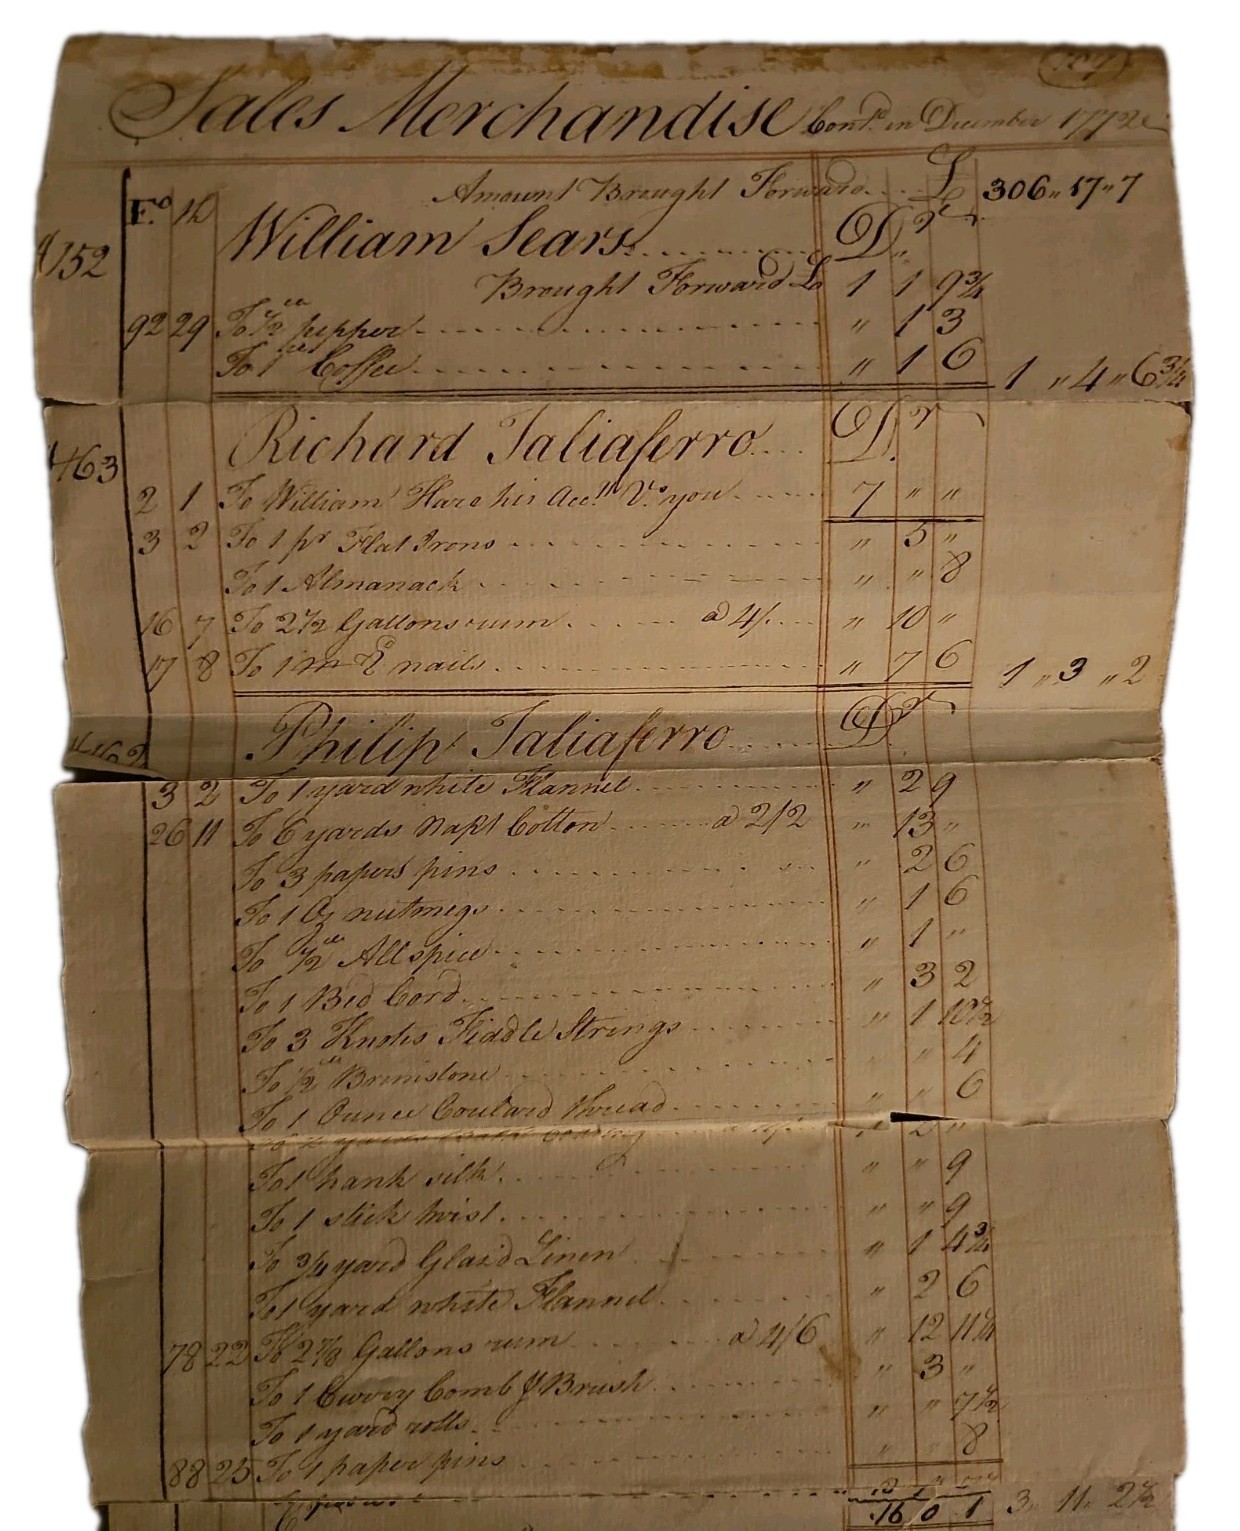 Sales Merchandise Cont.d in December 1772
Amount Brought Forward .... £ 306 " 17 " 7
F.o 10
152 William Sears ........ D.r
Brought Forward £ 1 1 9¾
92 29 To ½ lb pepper " 1 3
To 1 lb Coffee " 1 6 1 " 4 " 6¾
463 Richard Taliaferro .... D.r
2 1 To William Hare his Acc.t V.s you 7 " "
3 2 To 1 pr Flat Irons " 5 "
To 1 Almanack " " 8
16 7 To 2½ Gallons rum a 4/. " 10 "
17 8 To 1 m E nails " 7 6 1 " 3 " 2
Philip Taliaferro D.r
3 2 To 1 yard white Flannel " 2 9
26 11 To 6 yards Napt Cotton a 2/2 " 13 "
To 3 papers pins " 2 6
To 1 Oz nutmegs " 1 6
To ½ lb Allspice " 1 "
To 1 Bed Cord " 3 2
To 3 Knots Fiddle Strings " 1 10½
To ½ lb Brimstone " " 4
To 1 Ounce Coulard thread " " 6
To 1 hank silk " " 9
To 1 stick twist " " 9
To ¾ yard Glaz'd Linen " 1 4¾
To 1 yard white Flannel " 2 6
78 22 To 2⅞ Gallons rum a 4/6 " 12 11¼
To 1 Curry Comb & Brush " 3 "
To 1 yard rolls " " 7½
88 25 To 1 paper pins " " 8
16 0 1 3 " 11 " 2½